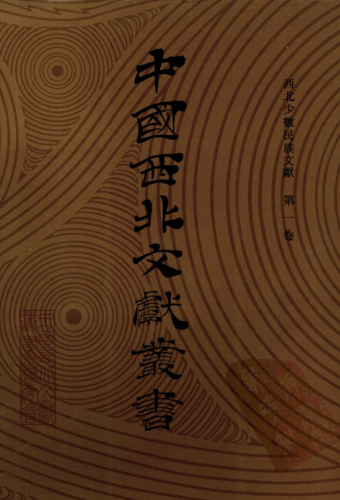 西北少數民族文獻 第一卷
中國西北文獻叢書